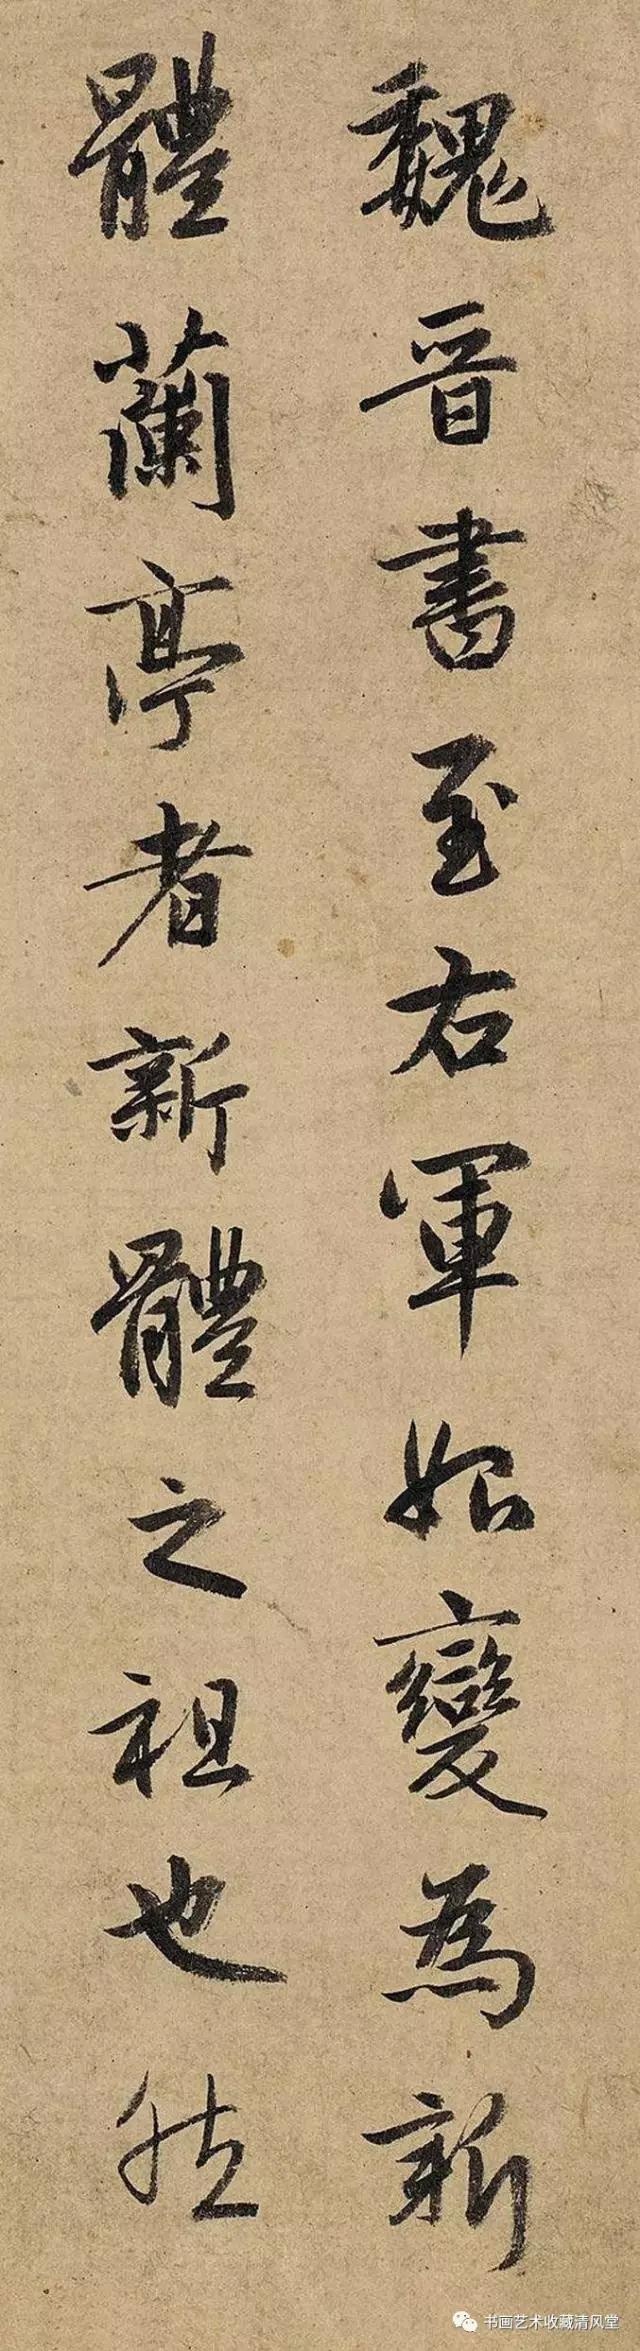 魏晉書至右軍始變為新
體蘭亭者新體之祖也然
书画艺术收藏清风堂